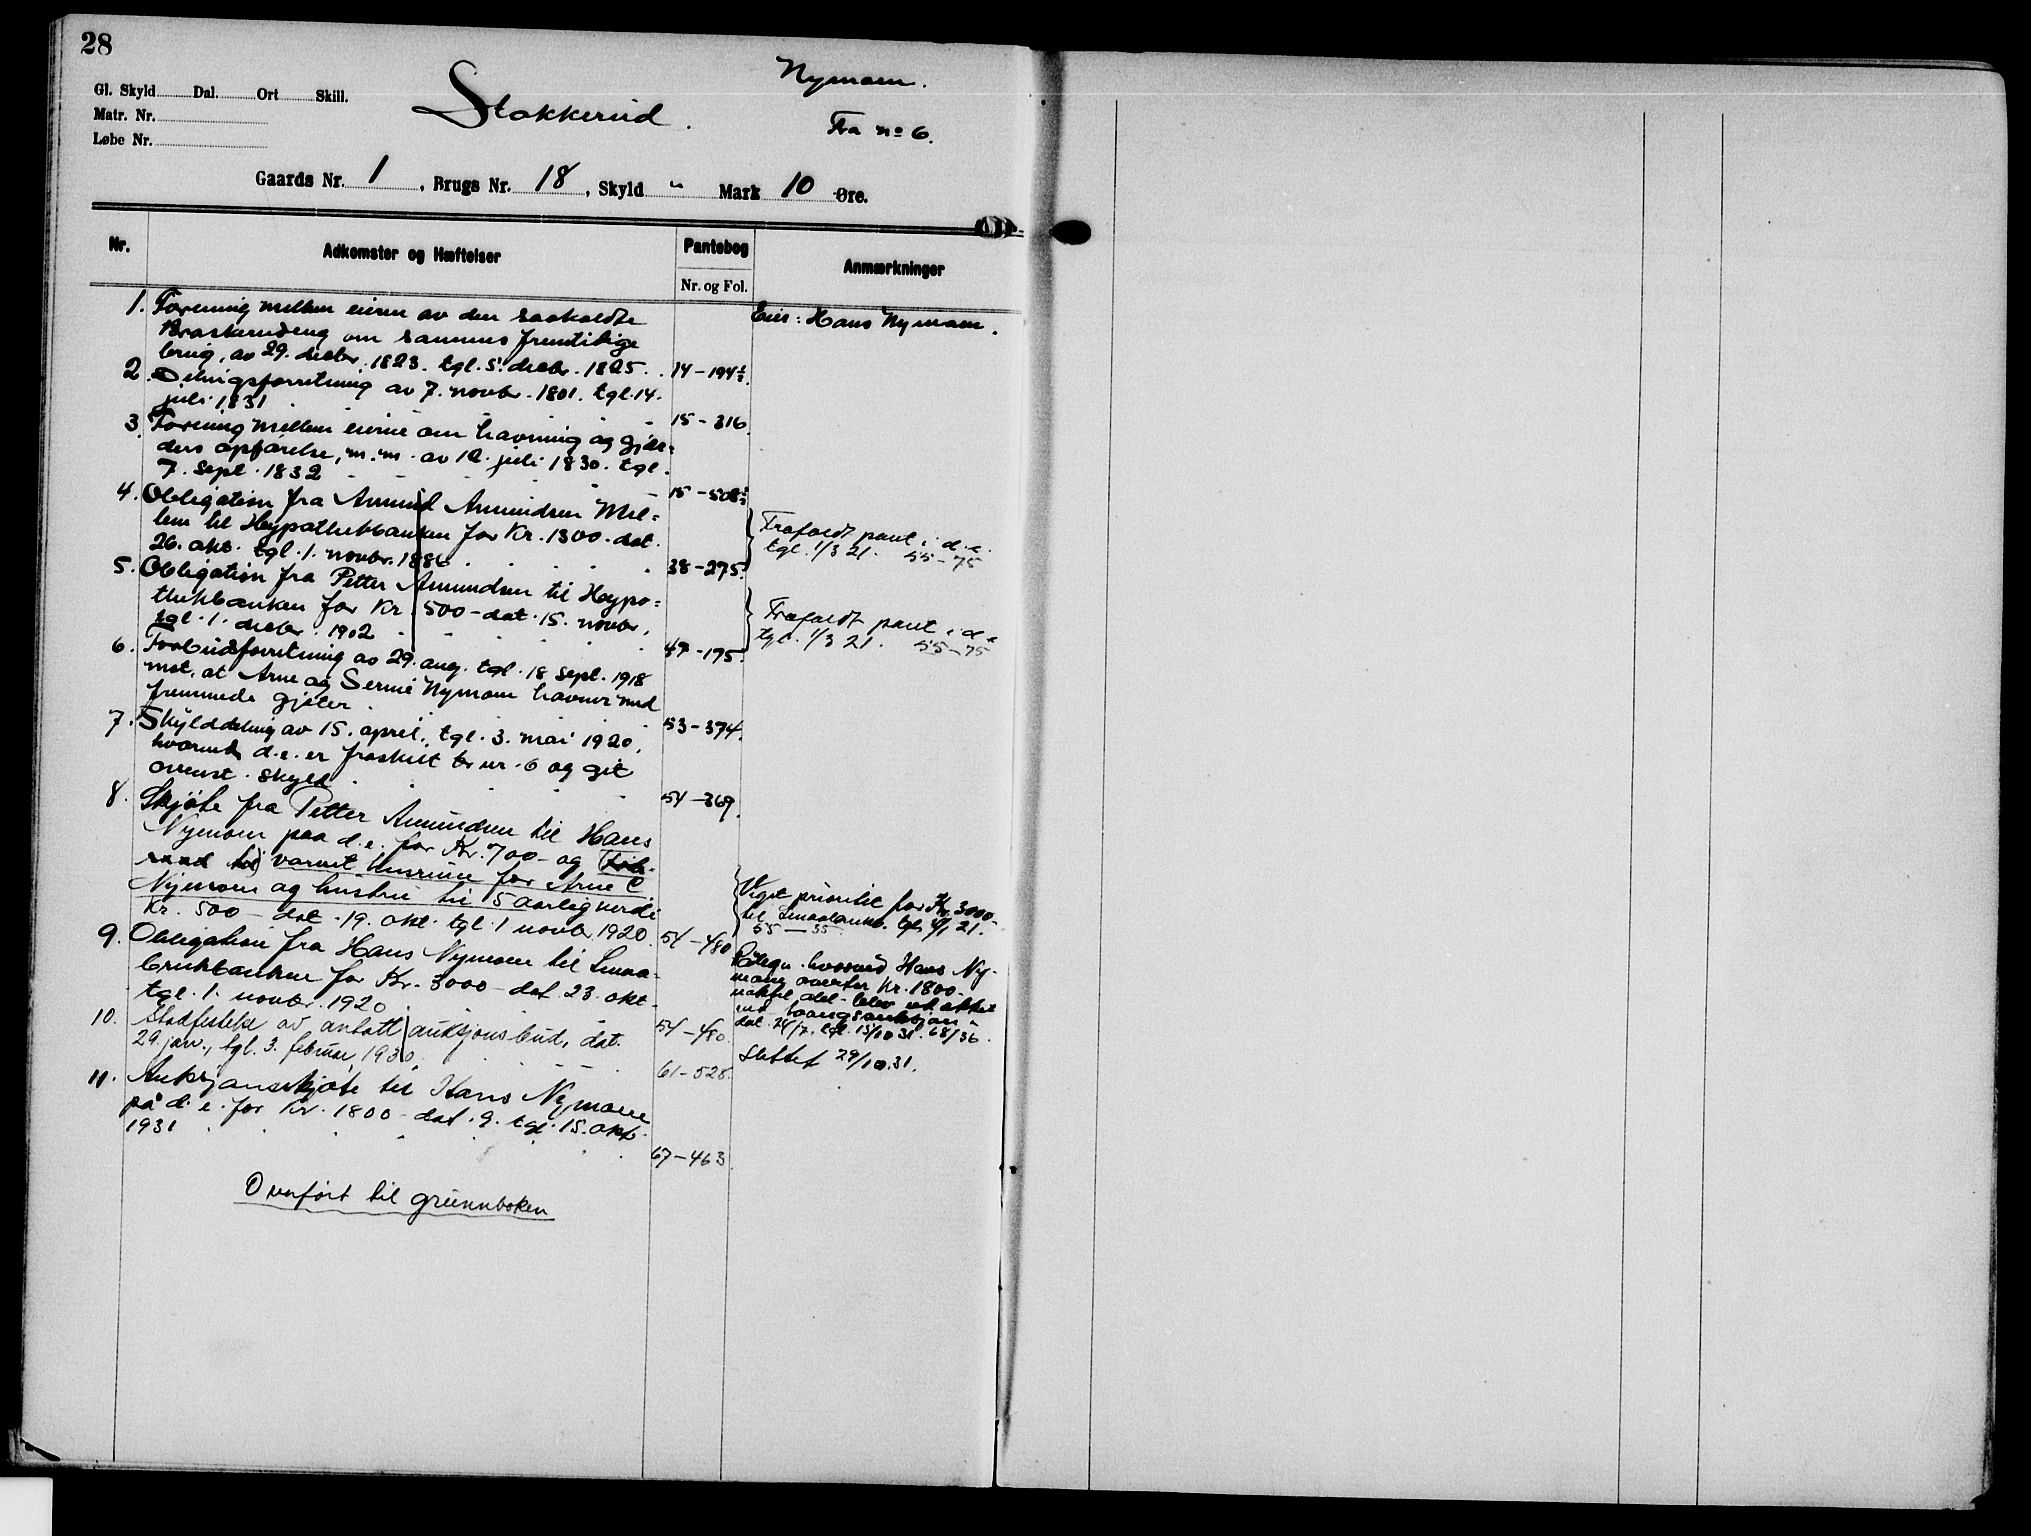 28
Gl. Skyld Dal. Ort Skill.
Matr. Nr.
Løbe Nr.
Stokkerud.
Nymoen.
Fra no 6.
Gaards Nr. 1, Brugs Nr. 18, Skyld " Mark 10 Øre.
Nr.
Adkomster og Hæftelser
Pantebog
Nr. og Fol.
Anmærkninger
1. Forening mellem eierne av den saakaldte
Braskerudeng om sammes fremtidige
brug, av 29. decbr. 1823. tgl. 5. decbr. 1825. 14-194½.
Eier: Hans Nymoen.
2. Delingsforretning av 7. novbr. 1801. tgl. 14.
juli 1831 15-316.
3. Forening mellem eierne om havning og gjær=
ders opførelse, m.m. av 12. juli 1830. tgl.
7. sept. 1832 15-508½
4. Obligation fra Amund Amundsen Mel=
lem til Hypothekbanken for Kr. 1300- dat.
26. okt. tgl. 1. novbr. 1886 38-275.
Frafaldt pant i d.e.
tgl. 1/3 21. 55-75
5. Obligation fra Petter Amundsen til Hypo=
thekbanken for Kr. 500- dat. 15. novbr.
tgl. 1. decbr. 1902 47-175.
Frafaldt pant i d.e
tgl. 1/3 21. 55-75
6. Forbudsforretning av 29. aug. tgl. 18 sept. 1918
mot, at Arne og Serine Nymoen havner med
fremmede gjeter 53-374.
7. Skylddeling av 15. april, tgl. 3. mai 1920,
hvorved d.e. er fraskilt br nr. 6 og git
ovennt. skyld 54-369.
8. Skjøte fra Petter Amundsen til Hans
Nymoen paa d.e. for Kr. 700- og
varmt husrum for Arne C
Nymoen og hustru til 5 aarlig verdi
Kr. 500- dat. 19. okt. tgl. 1 novb. 1920. 54-480
Veget prioritet for Kr. 3000-
til Smaabrukb. tgl. 4/1 21.
55-35
9. Obligation fra Hans Nymoen til Smaa-
brukbanken for Kr. 3000- dat. 23. okt.
tgl. 1. novbr. 1920 54-480.
hvorved Hans Ny-
moen overtar Kr. 1800-
ved
tvangsauksjon
dat. 24/7. tgl. 15/10 31. 68/36.
Slettet 29/10.31.
10. Stadfestelse av antatt auksjonsbud, dat.
29. jan., tgl. 3. februar 1930. 61-528.
11. Auksjonsskjøte til Hans Nymoen
på d.e. for Kr. 1800- dat. 9. tgl. 15. okt.
1931 67-463.
Overført til grunnboken